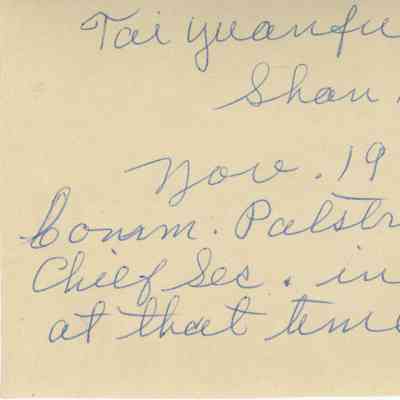 Tai yuanfu
Shan
Nov. 19
Comm. Palstr
Chief Sec. in
at that time